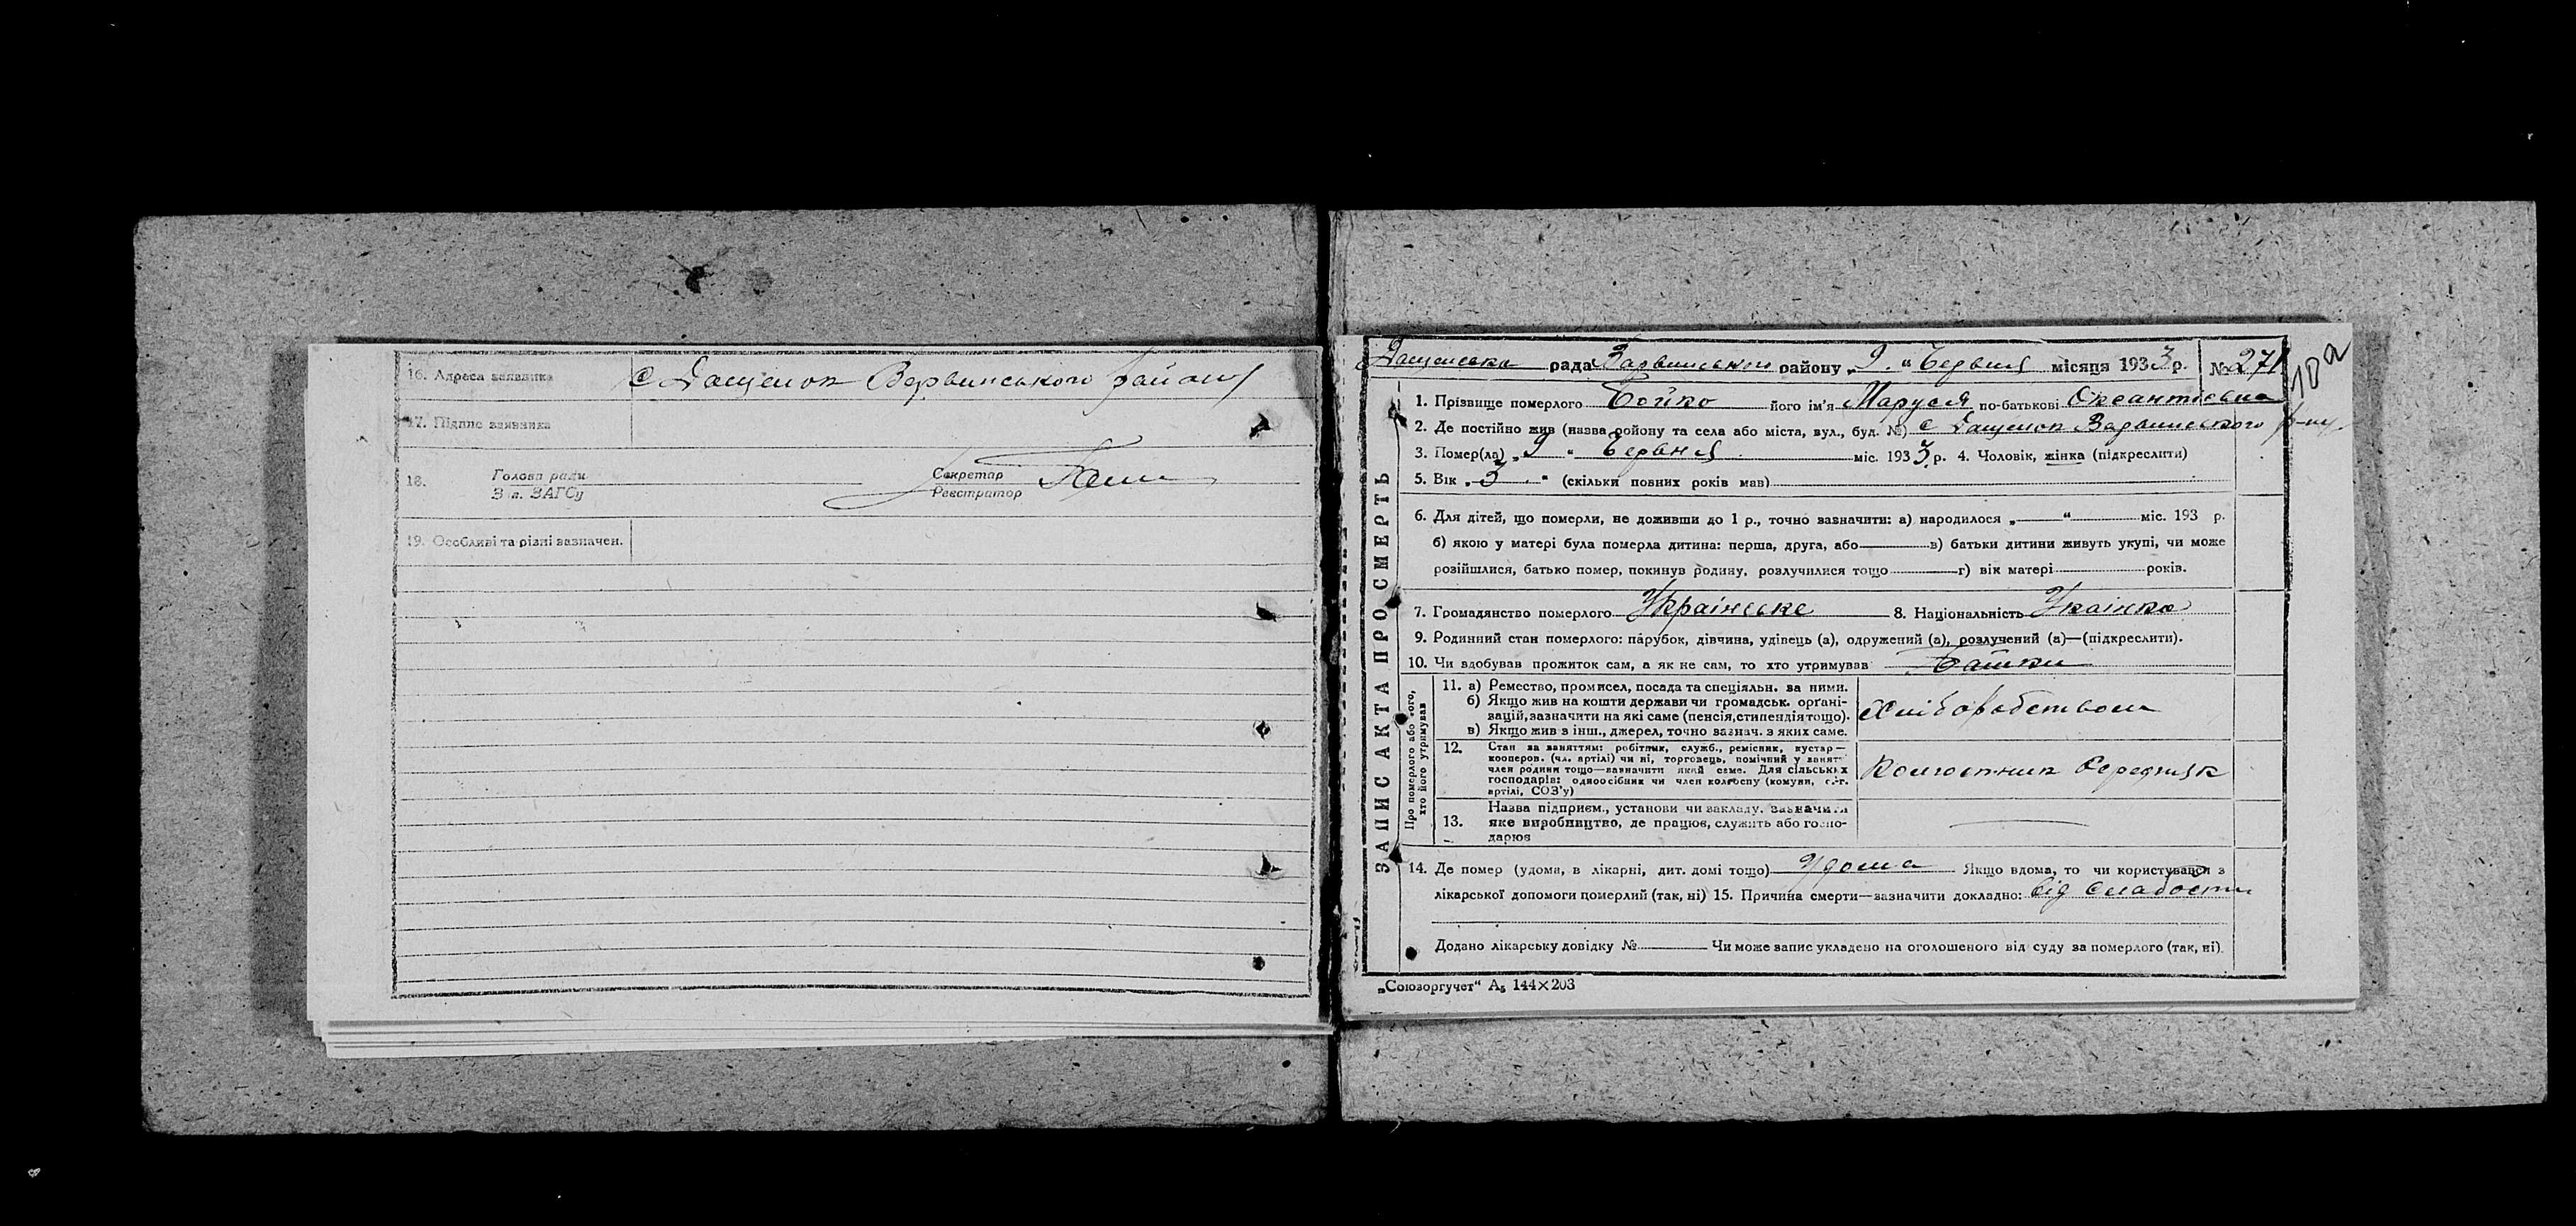 16. Адреса заявника с Дащенок Варвинського району
17. Підпис заявника
18. Голова ради Секретар
З в. ЗАГСу Реєстратор
19. Особливі та різні зазначен.
Дащенська рада Варвинського району „9.“ Червня місяця 1933 р. № 271
10а
ЗАПИС АКТА ПРО СМЕРТЬ
1. Прізвище померлого Бойко його ім'я Маруся по-батькові
2. Де постійно жив (назва району та села або міста, вул., буд. №) с Дащенок Варвинського р-ну.
3. Помер(ла) „9“ Червня міс. 1933 р. 4. Чоловік, жінка (підкреслити)
5. Вік „3“ (скільки повних років мав)
6. Для дітей, що померли, не доживши до 1 р., точно зазначити: а) народилося „ “ міс. 193 р.
б) якою у матері була померла дитина: перша, друга, або в) батьки дитини живуть укупі, чи може
розійшлися, батько помер, покинув родину, розлучилися тощо г) вік матері років.
7. Громадянство померлого Українське 8. Національність Укаінка
9. Родинний стан померлого: парубок, дівчина, удівець (а), одружений (а), розлучений (а)—(підкреслити).
10. Чи здобував прожиток сам, а як не сам, то хто утримував Батьки
Про померлого або того, хто його утримував
11. а) Ремество, промисел, посада та спеціяльн. за ними.
б) Якщо жив на кошти держави чи громадськ. орґані-
зацій, зазначити на які саме (пенсія, стипендія тощо).
в) Якщо жив з інш., джерел, точно зазнач. з яких саме.
Хліборобством
12. Стан за заняттям: робітник, служб., ремісник, кустар—
кооперов. (чл. артілі) чи ні, торговець, помічний у занят
член родини тощо—зазначити який саме. Для сільських
господарів: одноосібник чи член колгоспу (комуни, с.-г.
артілі, СОЗ'у)
Колгоспник Середняк
Назва підприєм., установи чи закладу, зазначити
13. яке виробництво, де працює, служить або госпо-
дарює
14. Де помер (удома, в лікарні, дит. домі тощо) Удома Якщо вдома, то чи користувався з
лікарської допомоги померлий (так, ні) 15. Причина смерти—зазначити докладно: Від слабости
Додано лікарську довідку № Чи може запис укладено на оголошеного від суду за померлого (так, ні).
„Союзоргучет“ А₅ 144×203